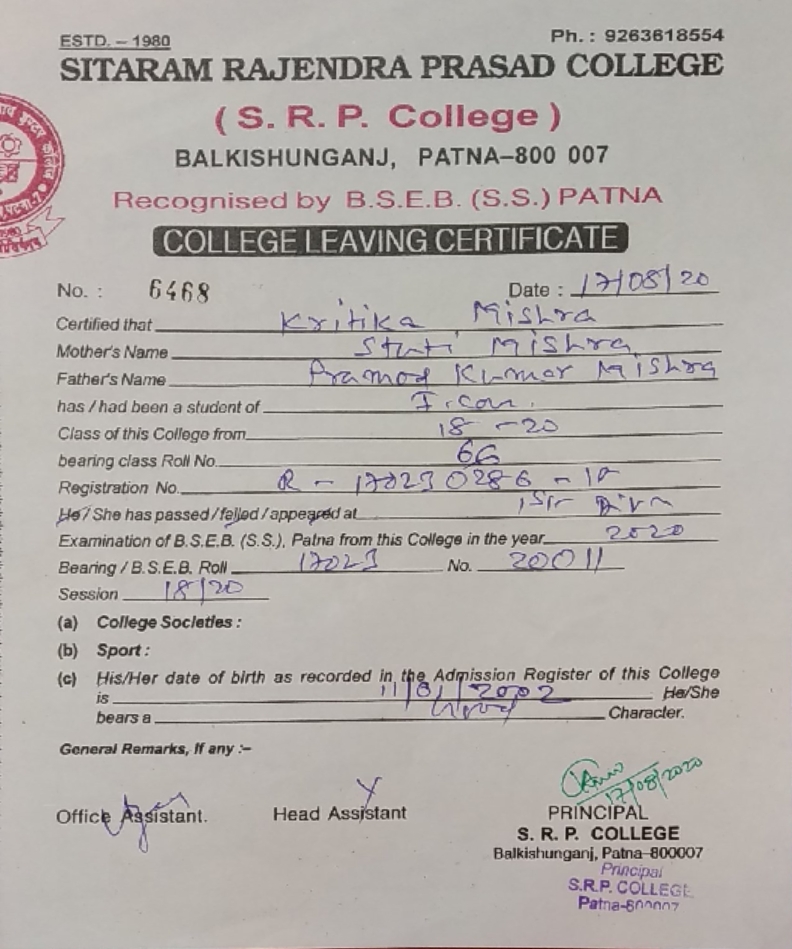 ESTD. – 1980 Ph. : 9263618554
SITARAM RAJENDRA PRASAD COLLEGE
( S. R. P. College )
BALKISHUNGANJ, PATNA–800 007
Recognised by B.S.E.B. (S.S.) PATNA
COLLEGE LEAVING CERTIFICATE
No. : 6468 Date : 17/08/20
Certified that Kritika Mishra
Mother's Name Stuti Mishra
Father's Name Pramod Kumar Mishra
has / had been a student of I.com.
Class of this College from 18 – 20
bearing class Roll No. 66
Registration No. R – 170230286 – 18
He / She has passed / failed / appeared at 1st Divn
Examination of B.S.E.B. (S.S.), Patna from this College in the year 2020
Bearing / B.S.E.B. Roll 17023 No. 20011
Session 18/20
(a) College Societies :
(b) Sport :
(c) His/Her date of birth as recorded in the Admission Register of this College
is 11/01/2002 He/She
bears a Good Character.
General Remarks, If any :–
17/08/2020
Office Assistant. Head Assistant PRINCIPAL
S. R. P. COLLEGE
Balkishunganj, Patna–800007
Principal
S.R.P. COLLEGE
Patna-800007